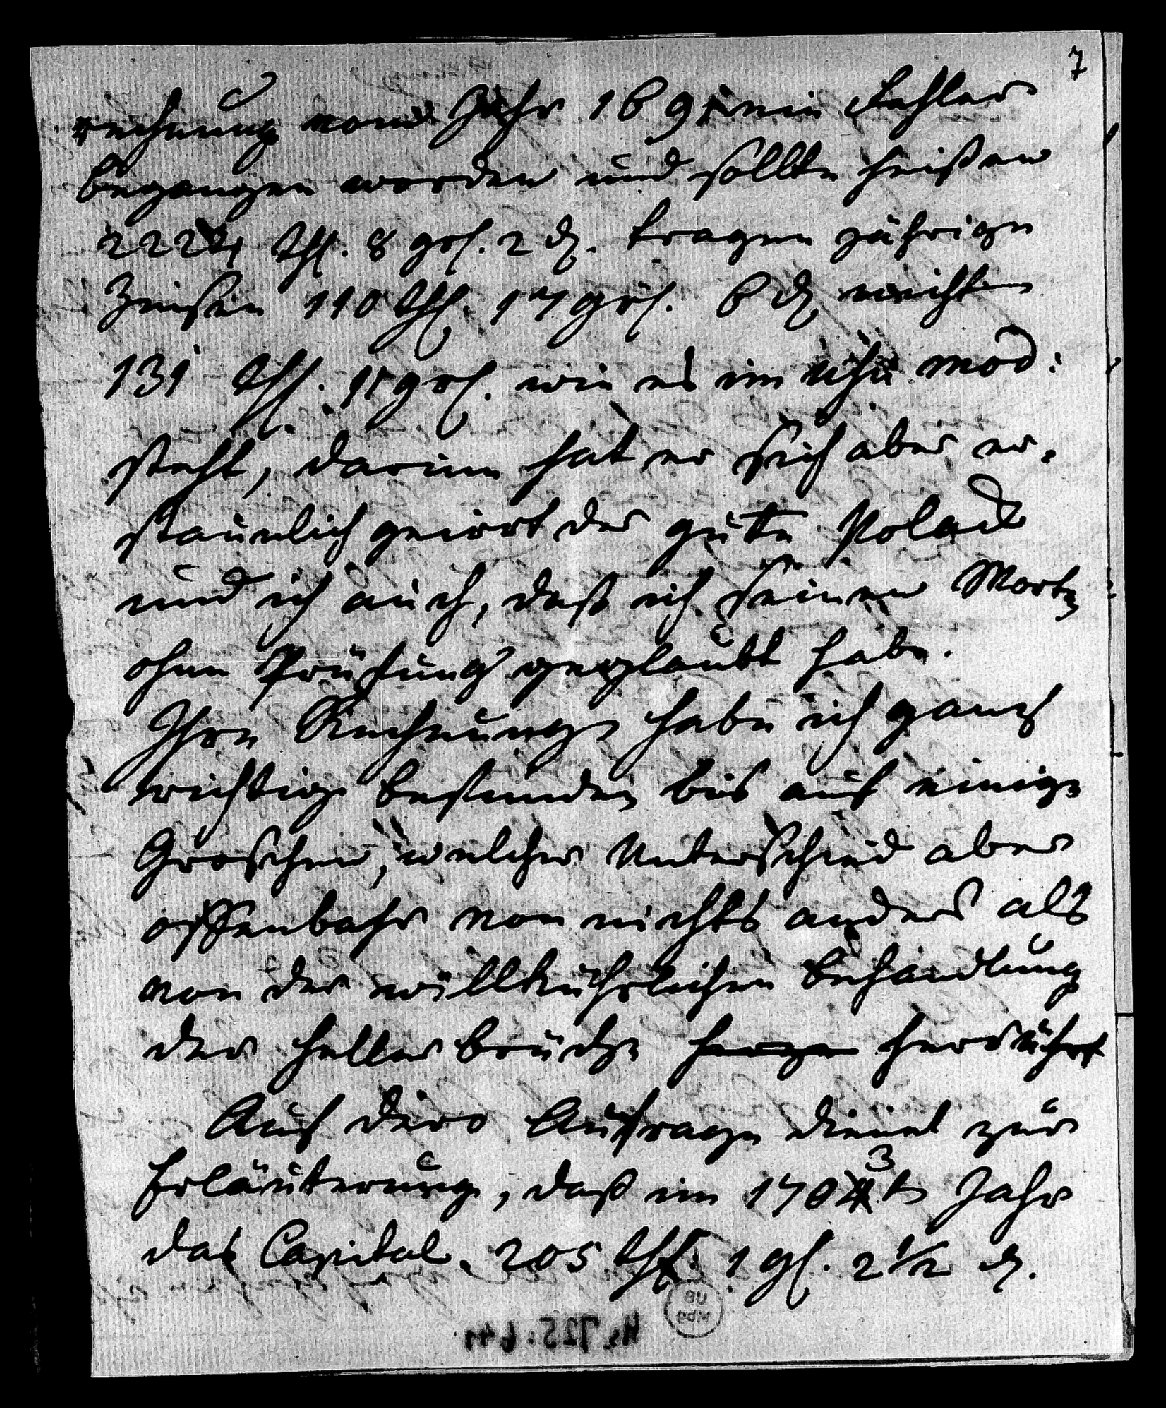 7
rechnung vom Jahr 1691 ein Fehler
begangen worden und sollte heißen
2224 thl. 8 grs. 2 d. tragen jährige
Zinsen 110 thl. 17 grs. 6 d nicht
131 thl. 15 grs. wie es im mod:
steht, darinn hat er sich aber er-
staunlich geirrt der gute Polack
und ich auch, daß ich seinen Worte
ohne Prüfung geglaubt habe.
Ihre Rechnung habe ich ganz
richtig befunden bis auf einige
Groschen, welcher Unterschied aber
offenbahr von nichts anders als
von der willkührlichen Behandlung
der hellerbrüche herrührt
Auf dero Anfrage dienet zur
Erläuterung, daß im 1703t Jahr
das Capital. 205 thl. 1 gl. 2 1/2 d.